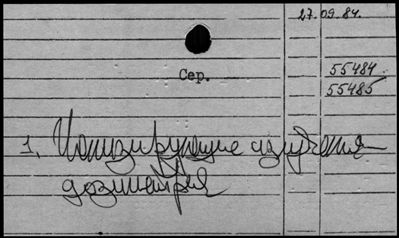 27.09.84.
55484
Сер.
55485
1, Ионизирующие излучения
дозиметрия